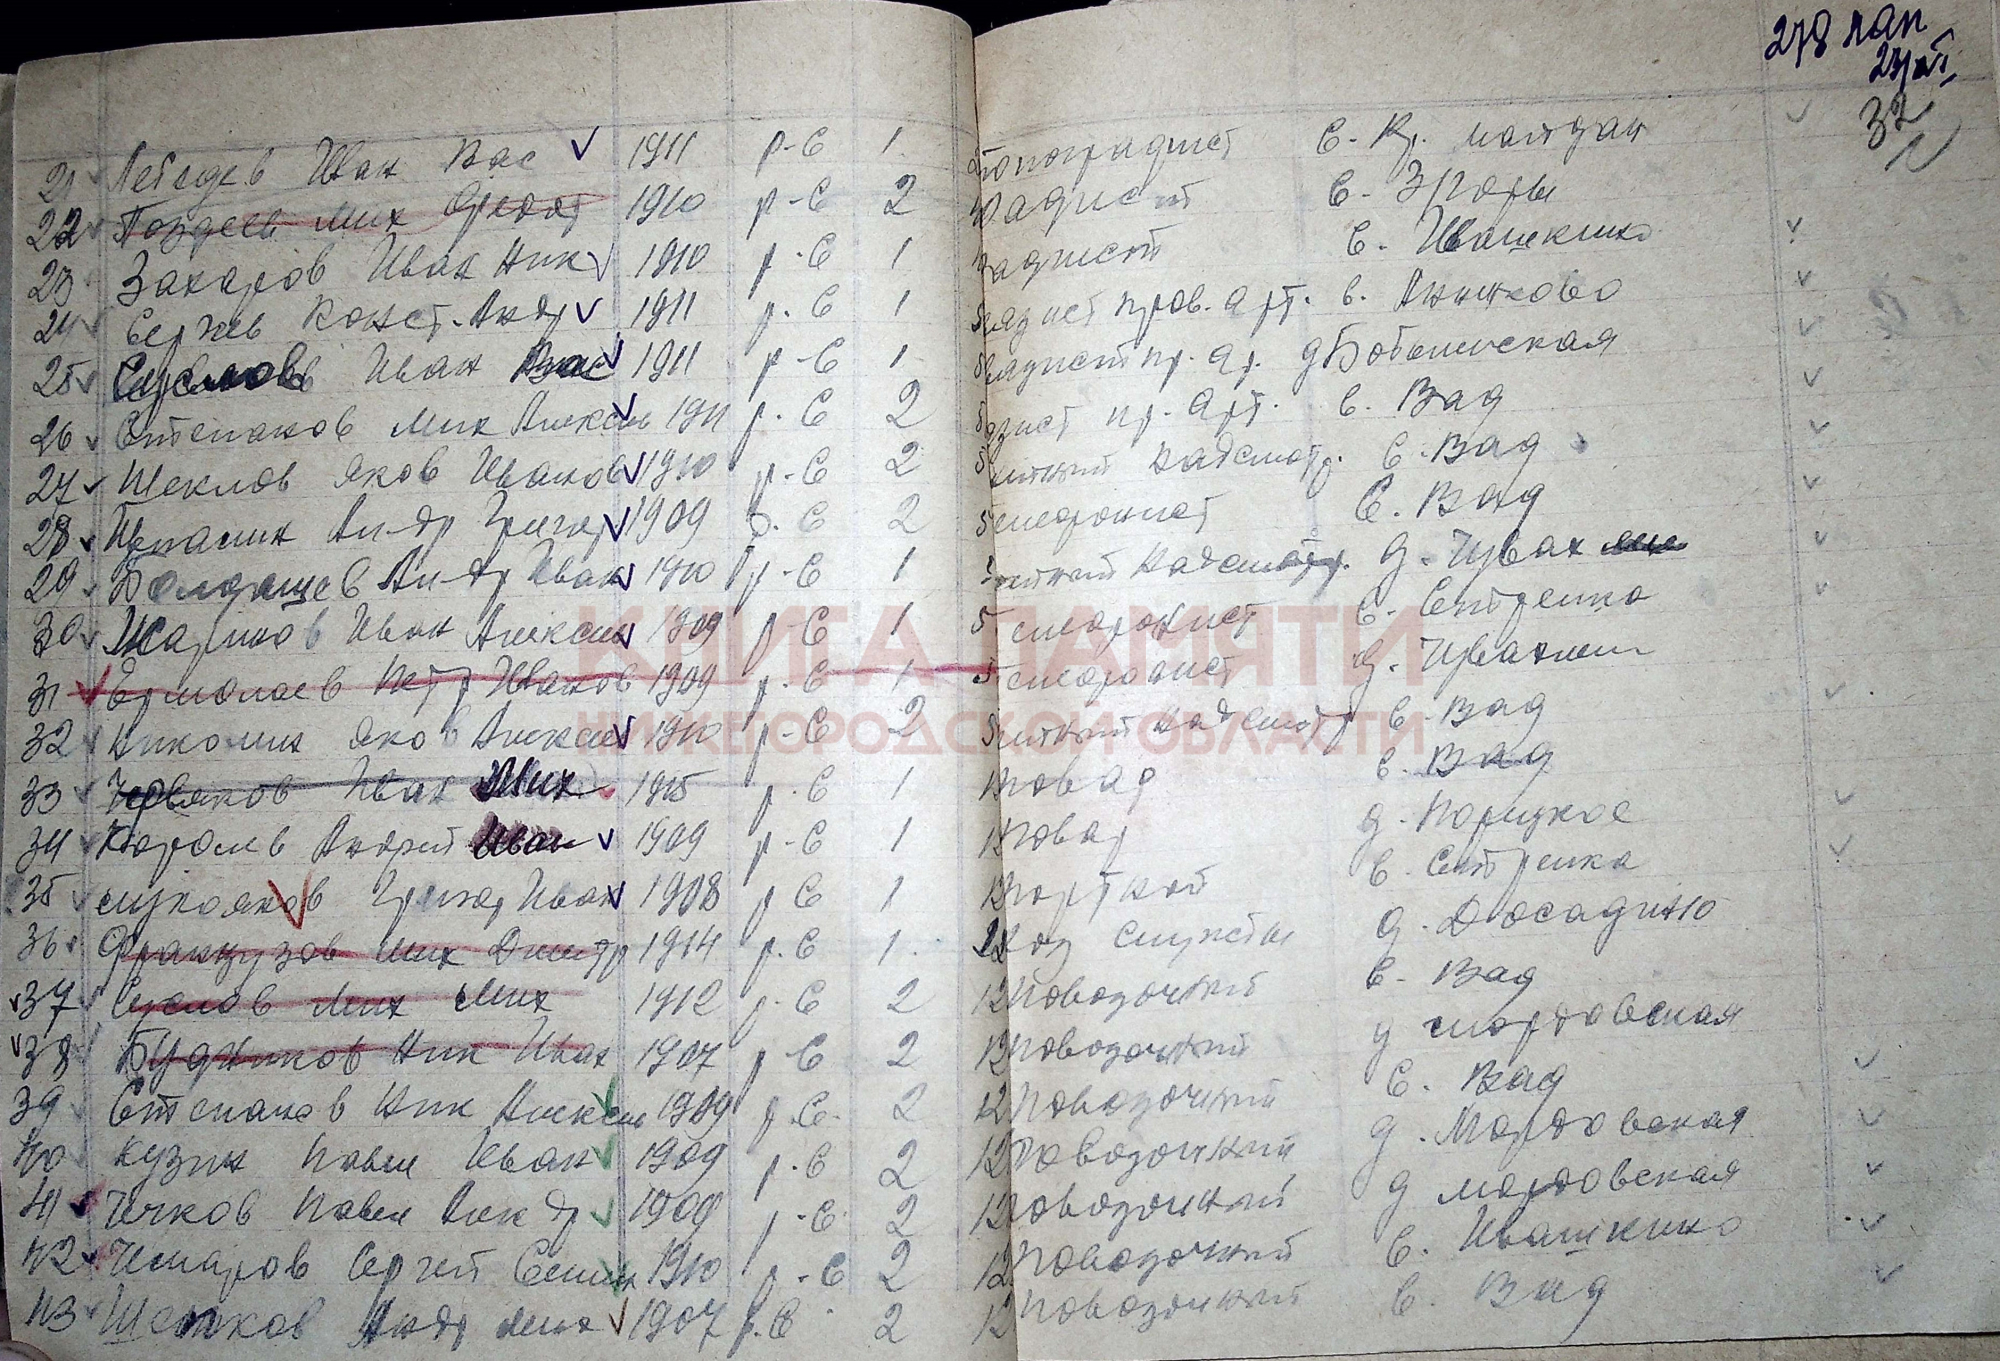 278 пап
23/VI
32
21 Лебедев Иван Вас 1911 р-С 1 топографист С. Кр. майдан
22 Поздеев Мих Федот 1910 р-С 2 радист С. Згоры
23 Захаров Иван Ник 1910 р-С 1 радист С. Ивашкино
24 Сергеев Конст. Андр 1911 р-С 1 пров. арт. с.
25 Суслов Иван Вас 1911 р-С 1 пр. ар. д
26 Степанов Мих Алексеев 1911 р-С 2 пр. арт. с. Вад
27 Щеклов Яков Иванов 1910 р-С 2 надсмотр. С. Вад
28 Андр Григор 1909 р-С 2 5 телефонист С. Вад
29 Болдашев Андр Иван 1910 р-С 1 надсмотр. д.
30 Жариков Иван Алексеев 1909 р-С 1 5 телефонист С.
31 Ермолаев Петр Иванов 1909 р-С 1 5 телефонист д.
32 Николин Яков Алексеев 1910 р-С 2 надсмотр С. Вад
33 Червяков Иван Мих 1915 р-С 1 повар С. Вад
34 Королев Андрей Иван 1909 р-С 1 повар д. Порецкое
35 Григор Иван 1908 р С 1 портной С.
36 Французов Мих Дмитр 1914 р-С 1 хоз службы д.
37 Суслов Мих Мих 1912 р-С 2 12 повозочный С. Вад
38 Будников Ник Иван 1907 р-С 2 12 повозочный д мордовская
39 Степанов Ник Алексеев 1909 р-С 2 12 повозочный С. Вад
40 Кузин Павел Иван 1909 р-С 2 12 повозочный д. Мордовская
41 Чечков Павел Алекдр 1909 р-С 2 12 повозочный д мордовская
42 Сергей Семен 1910 р-С 2 12 повозочный С. Ивашкино
43 Андр Мих 1907 р-С 2 12 повозочный С. Вад
КНИГА ПАМЯТИ
НИЖЕГОРОДСКОЙ ОБЛАСТИ